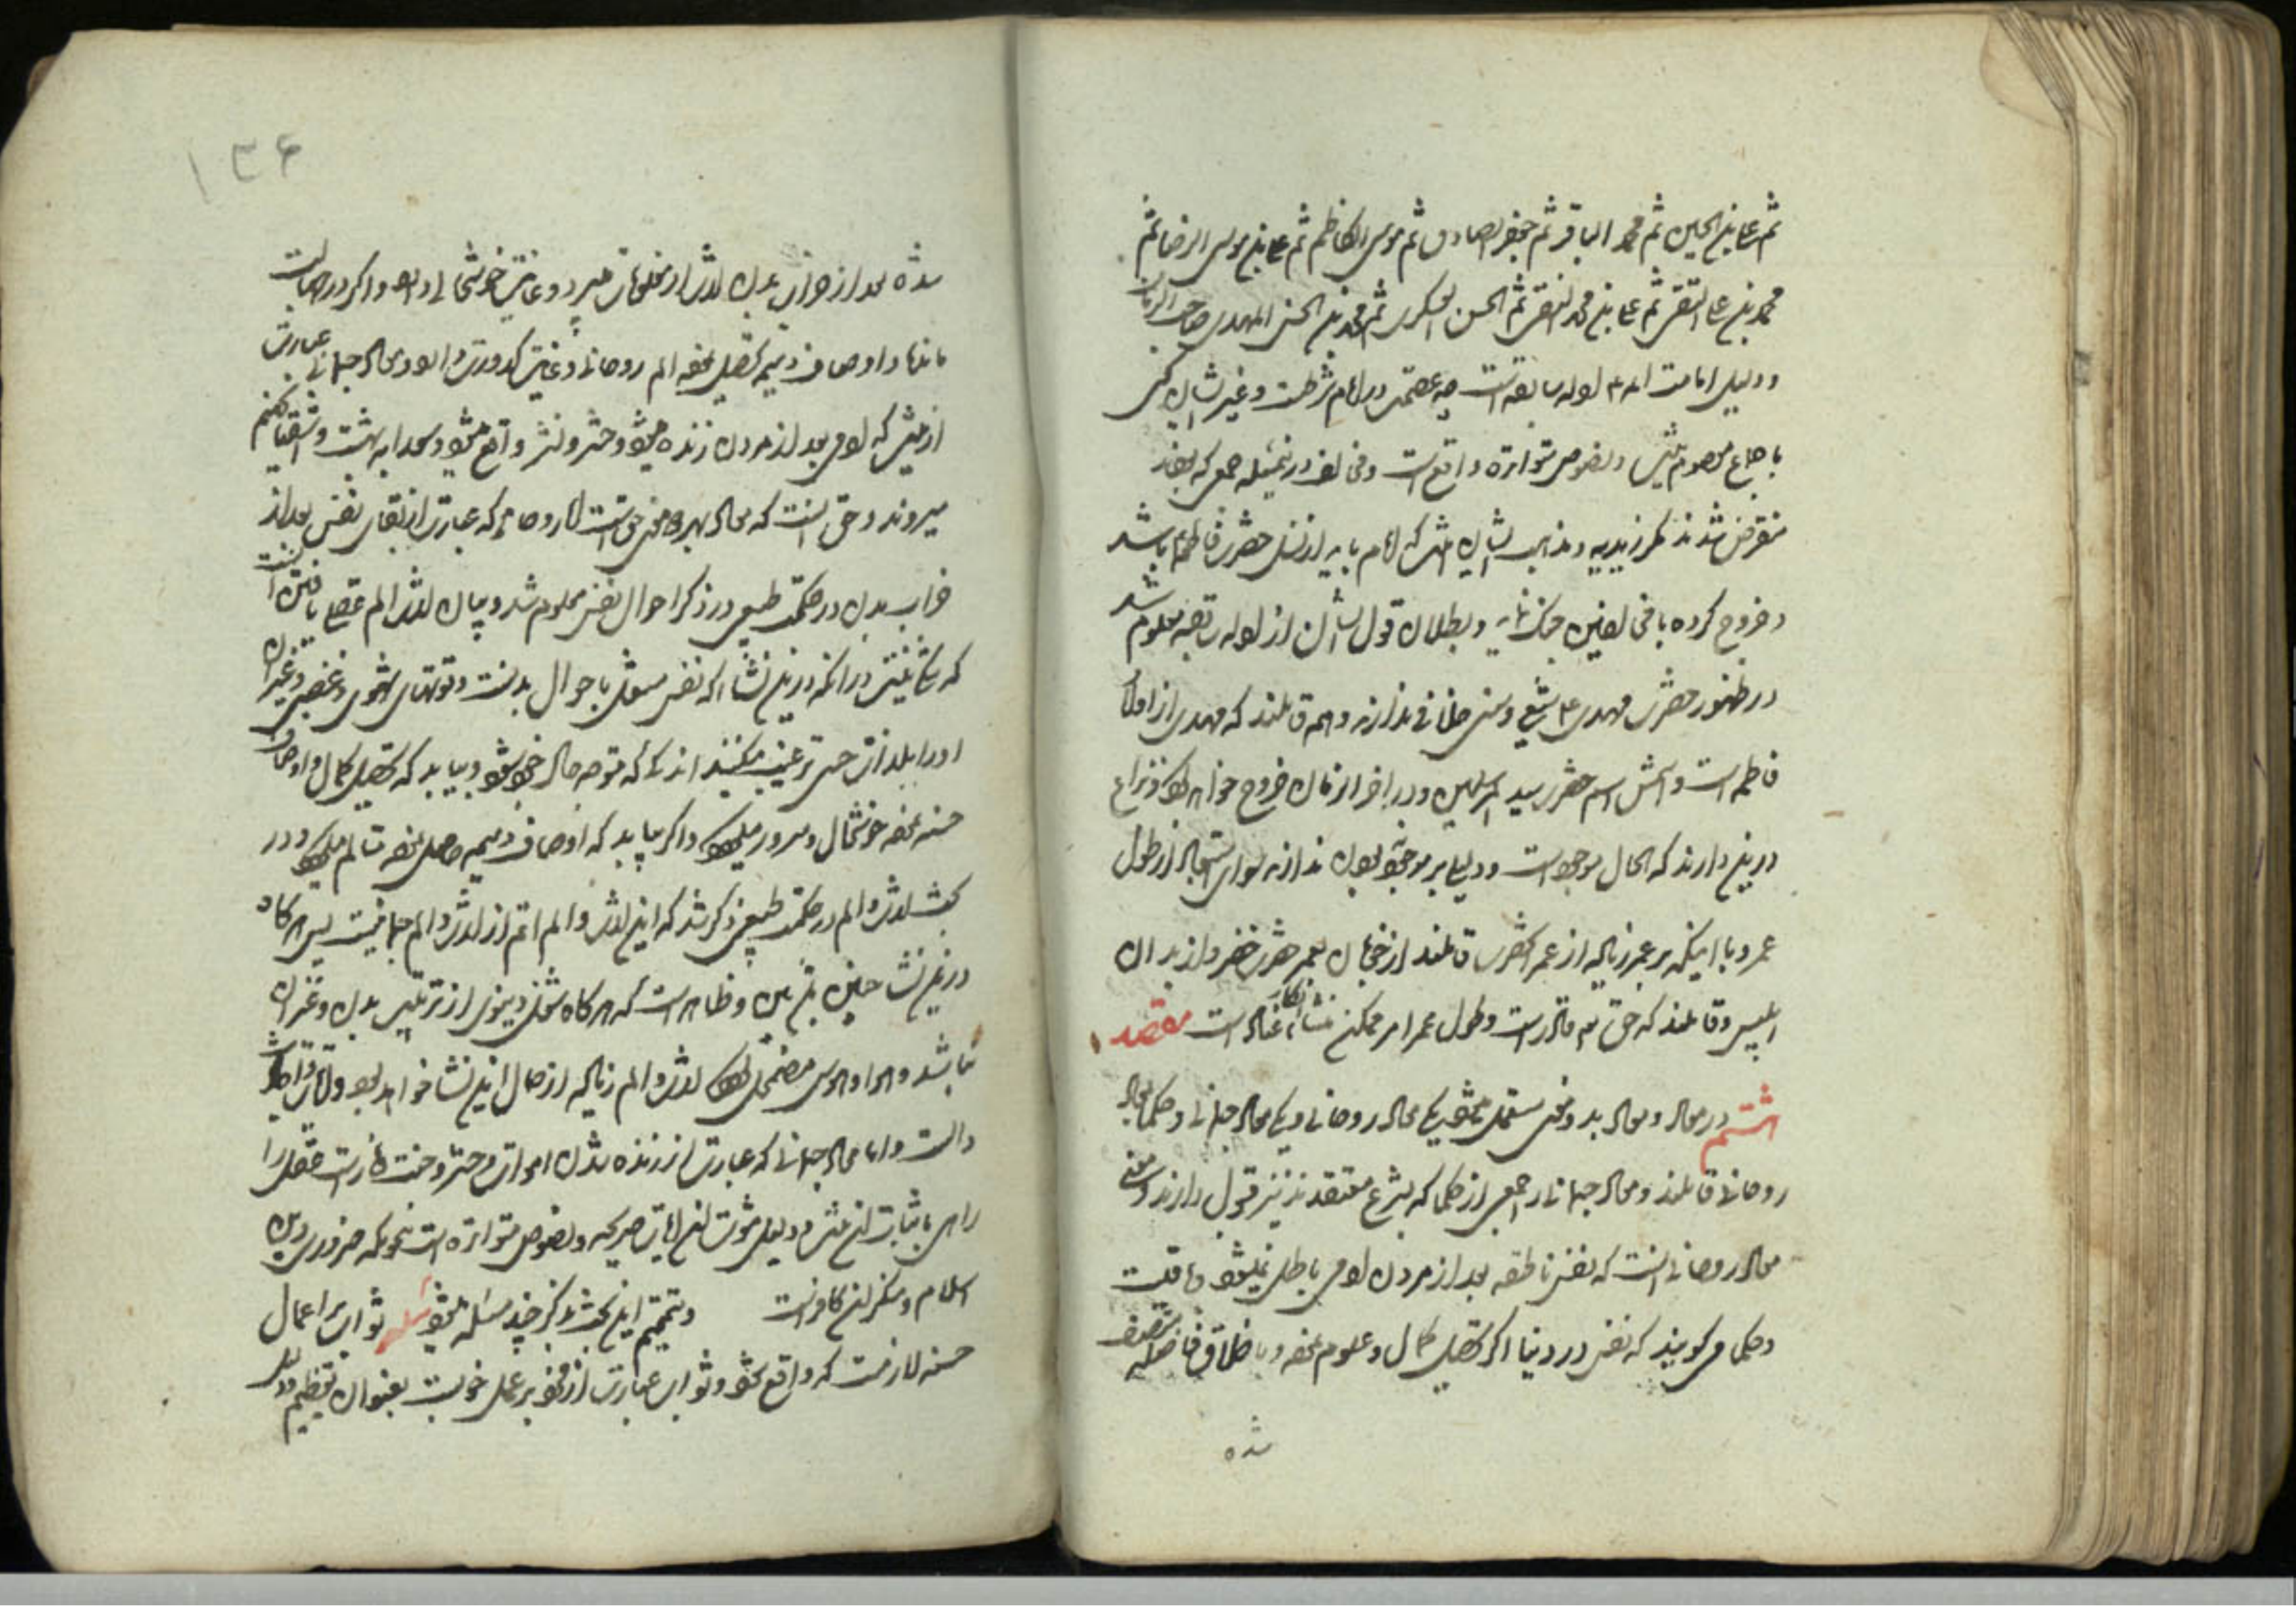 ثم علی بن الحسین ثم محمد الباقر ثم جعفر الصادق ثم موسی الکاظم ثم علی بن موسی الرضا ثم
محمد بن علی التقی ثم علی بن محمد النقی ثم الحسن العسکری ثم محمد بن الحسن المهدی صاحب الزمان
و دلیل امامت ائمه ادله سابقه است چه عصمت در امام شرطست و غیر ایشان کسی
باجماع معصوم نیست و نصوص متواتره واقع است و مخالف درین مسئله جمعی که بودند
منقرض شدند مگر زیدیه و مذهب ایشان آنست که امام باید از نسل حضرت فاطمه باشد
و خروج کرده با مخالفین جنگ نماید و بطلان قول ایشان از ادله سابقه معلوم شد
در ظهور حضرت مهدی ع شیعی و سنی خلافی ندارند و همه قائلند که مهدی از اولاد
فاطمه است و اسمش اسم حضرت سید المرسلین و در آخر الزمان خروج خواهد کرد و نزاع
درین دارند که الحال موجود است و دلیلی بر موجود نبودن ندارند سوای استبعاد از طول
عمر و با اینکه بر عمر زیاده از عمر آنحضرت قائلند از خوبان عمر حضرت خضر و از بدان
ابلیس و قائلند که حق تعالی قادر است و طول عمر امر ممکن منشأ انکار عناد است مقصد
هشتم در معاد و معاد بدو معنی مستعمل میشود یکی معاد روحانی و یکی معاد جسمانی و حکما بمعاد
روحانی قائلند و معاد جسمانی را جمعی از حکما که بشرع معتقدند نیز قبول دارند و معنی
معاد روحانی آنست که نفس ناطقه بعد از مردن آدمی باطل نمیشود و باقیست
و حکما میگویند که نفس در دنیا اگر تحصیل کمال و علوم نموده و باخلاق فاضله متصف
شده
۱۳۶
شده بعد از خراب بدن لذت از معلومات میبرد و غایت خوشحالی دارد و اگر در جهالت
مانده و اوصاف ذمیمه تحصیل نموده الم روحانی و غایت کدورت دارد و معاد جسمانی عبارت
ازینست که آدمی بعد از مردن زنده میشود و حشر و نشر واقع میشود و سعدا به بهشت و اشقیا بجهنم
میروند و حق آنست که معاد بهر دو معنی حق است اما روحانی که عبارت از بقای نفس بعد از
خراب بدن در حکمت طبیعی در ذکر احوال نفس معلوم شد و بیان لذت و الم عقلی یافتن آنست
که شک نیست در آنکه درین نشأ که نفس مشغول باحوال بدنست و قوتهای شهوی و غضبی و غیر آن
او را بلذات حسی ترغیب میکنند اندکی که متوجه حال خود شود و بیابد که تحصیل کمال و اوصاف
حسنه نموده خوشحال و مسرور میگردد و اگر بیابد که اوصاف ذمیمه حاصل نموده متألم میگردد و در
بحث لذت و الم در حکمت طبیعی ذکر شد که این لذت و الم اتم از لذت و الم جسمانیست پس هرگاه
درین نشأ چنین باشد و ظاهر است که هرگاه شغل دنیوی از ترتیب بدن و غیر آن
نباشد و هوا و هوس مضمحل گردد لذت و الم زیاده از حال این نشأ خواهد بود
و اما معاد جسمانی که عبارت از زنده شدن اموات و حشر و جنت و نار است عقل را
راهی باثبات آن نیست و دلیل ثبوت آن آیات صریحه و نصوص متواتره است بنحویکه ضروری دین
اسلام و منکر آن کافر است و تتمیم این بحث بذکر چند مسئله میشود مسئله ثواب بر اعمال
حسنه لازمست که واقع شود و ثواب عبارت از نفع بر عمل خوبست بعنوان تعظیم